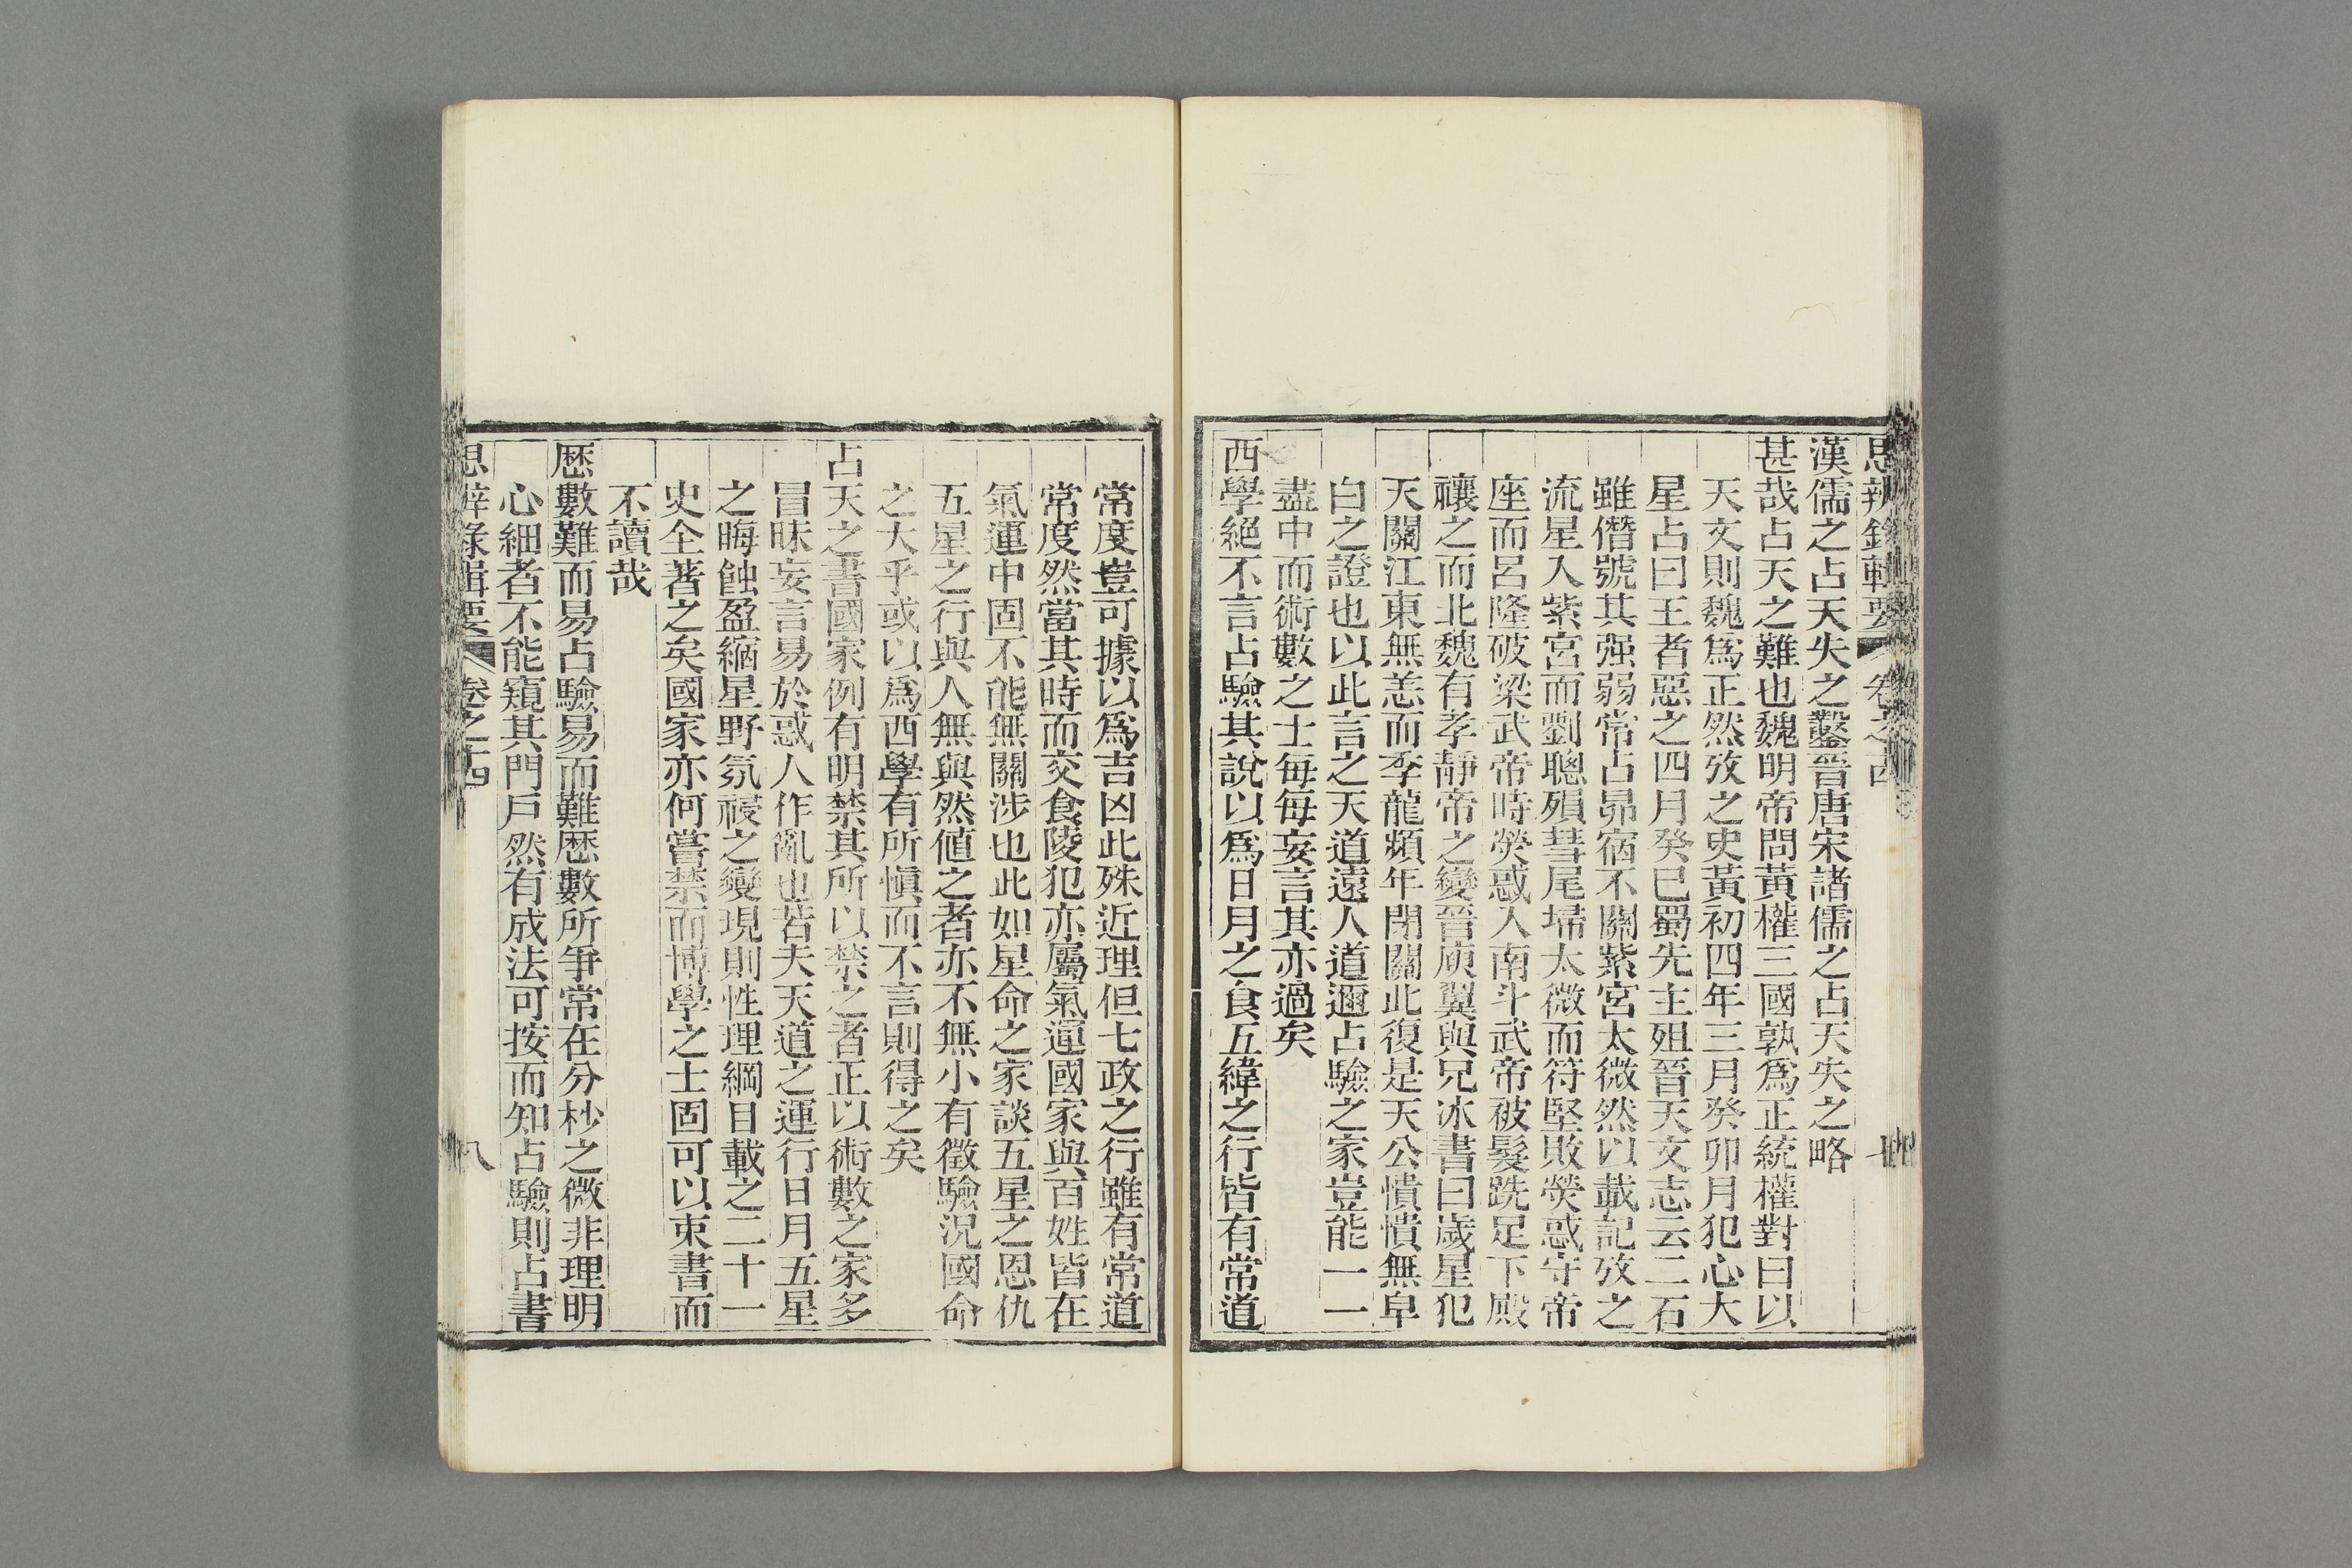 思辨錄輯要 卷之十四
漢儒之占天失之鑿晉唐宋諸儒之占天失之略
甚哉占天之難也魏明帝問黃權三國孰爲正統權對曰以
天文則魏爲正然攷之史黃初四年三月癸卯月犯心大
星占曰王者惡之四月癸巳蜀先主殂晉天文志云二石
雖僭號其强弱常占昴宿不關紫宮太微然以載記攷之
流星入紫宮而劉聰殞彗尾埽太微而符堅敗熒惑守帝
座而呂隆破梁武帝時熒惑入南斗武帝被髮跣足下殿
禳之而北魏有孝靜帝之變晉庾翼與兄冰書曰歲星犯
天關江東無恙而季龍頻年閉關此復是天公憒憒無皁
白之證也以此言之天道遠人道邇占驗之家豈能一一
盡中而術數之士每每妄言其亦過矣
西學絕不言占驗其說以爲日月之食五緯之行皆有常道
常度豈可據以爲吉凶此殊近理但七政之行雖有常道
常度然當其時而交食陵犯亦屬氣運國家與百姓皆在
氣運中固不能無關涉也此如星命之家談五星之恩仇
五星之行與人無與然値之者亦不無小有徵驗況國命
之大乎或以爲西學有所愼而不言則得之矣
占天之書國家例有明禁其所以禁之者正以術數之家多
冒昧妄言易於惑人作亂也若夫天道之運行日月五星
之晦蝕盈縮星野氛祲之變現則性理綱目載之二十一
史全著之矣國家亦何嘗禁而博學之士固可以束書而
不讀哉
歷數難而易占驗易而難歷數所爭常在分杪之微非理明
心細者不能窺其門戶然有成法可按而知占驗則占書
思辨錄輯要 卷之十四 八